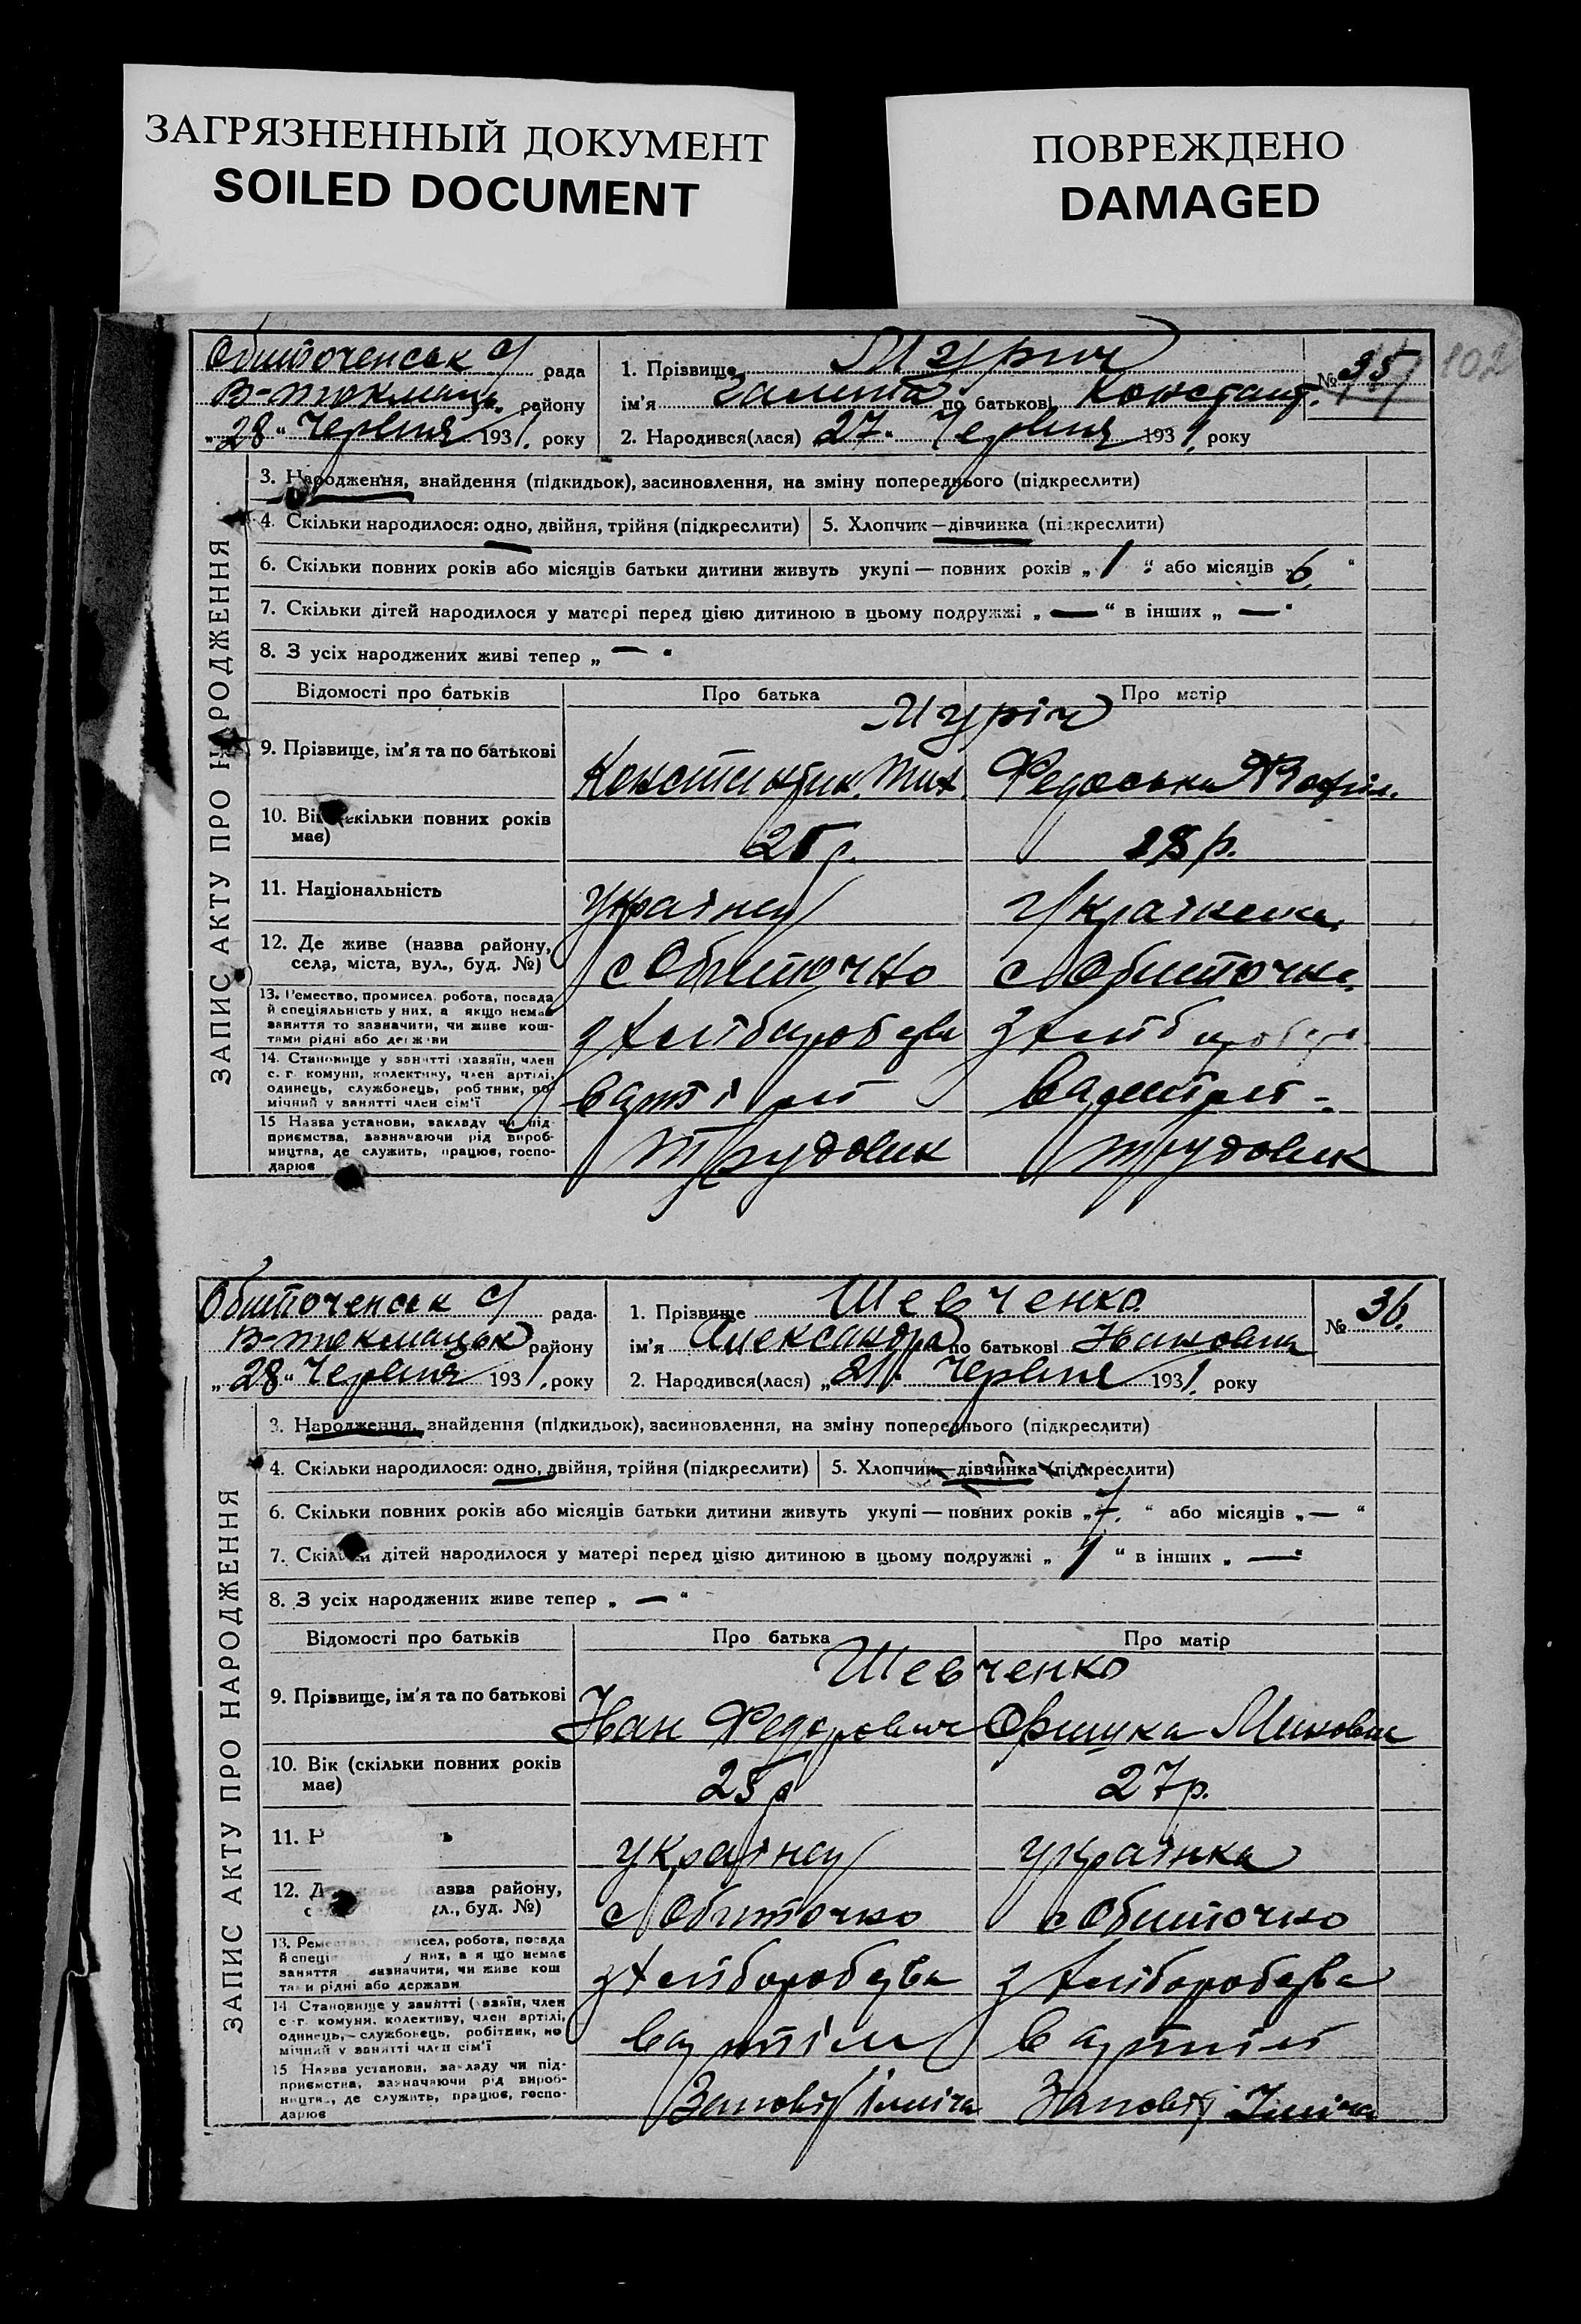 ЗАГРЯЗНЕННЫЙ ДОКУМЕНТ
SOILED DOCUMENT
ПОВРЕЖДЕНО
DAMAGED
102
Обиточенськ с/ рада
В-Токмацьк. району
„28“ Червня 1931. року
1. Прізвище Мурич
ім'я Галина по батькові Констант.
№ 35
2. Народився(лася) 27 Червня 1931. року
ЗАПИС АКТУ ПРО НАРОДЖЕННЯ
3. Народження, знайдення (підкидьок), засиновлення, на зміну попереднього (підкреслити)
4. Скільки народилося: одно, двійня, трійня (підкреслити) 5. Хлопчик—дівчинка (підкреслити)
6. Скільки повних років або місяців батьки дитини живуть укупі — повних років „1“ або місяців „6“
7. Скільки дітей народилося у матері перед цією дитиною в цьому подружжі „—“ в інших „—“
8. З усіх народжених живі тепер „—“
Відомості про батьків Про батька Про матір
Муріч
9. Прізвище, ім'я та по батькові Константин. Тих. Федоська
10. Вік (скільки повних років має) 25 р. 18 р.
11. Національність українец Українка.
12. Де живе (назва району, села, міста, вул., буд. №) с Обиточно с Обиточно
13. Ремество, промисел, робота, посада
й спеціяльність у них, а якщо немає
заняття то зазначити, чи живе кош-
тами рідні або держави
з хліборобства з хліборобства
14. Становище у занятті (хазяїн, член
с.-г. комуни, колективу, член артілі,
одинець, службовець, робітник, по-
мічний у занятті член сім'ї
в артілі в артілі
15 Назва установи, закладу чи під-
приємства, зазначаючи рід вироб-
ництва, де служить, працює, госпо-
дарює
Трудовик Трудовик
Обиточенськ с/ рада
В-Токмацьк району
„28“ Червня 1931. року
1. Прізвище Шевченко
ім'я Александра по батькові Ивановна
№ 36.
2. Народився(лася) „21“ Червня 1931. року
ЗАПИС АКТУ ПРО НАРОДЖЕННЯ
3. Народження, знайдення (підкидьок), засиновлення, на зміну попереднього (підкреслити)
4. Скільки народилося: одно, двійня, трійня (підкреслити) 5. Хлопчик—дівчинка (підкреслити)
6. Скільки повних років або місяців батьки дитини живуть укупі — повних років „7.“ або місяців „—“
7. Скільки дітей народилося у матері перед цією дитиною в цьому подружжі „1“ в інших „—“
8. З усіх народжених живе тепер „—“
Відомості про батьків Про батька Про матір
Шевченко
9. Прізвище, ім'я та по батькові Иван Федорович Оришка
10. Вік (скільки повних років має) 25 р 27 р.
11. українец українка
12. назва району, буд. №) с Обиточно с Обиточно
13. Ремество, промисел, робота, посада
й спеці у них, а якщо немає
заняття зазначити, чи живе кош
тами рідні або держави
з хліборобства з хліборобства
14 Становище у занятті (хазяїн, член
с.-г. комуни, колективу, член артілі,
одинець,—службовець, робітник, по
мічний у занятті член сім'ї
в артілі в артілі
15 Назва установи, закладу чи під-
приємства, зазначаючи рід вироб-
ництва, де служить, працює, госпо-
дарює
Заповіт Ілліча Заповіт Ілліча